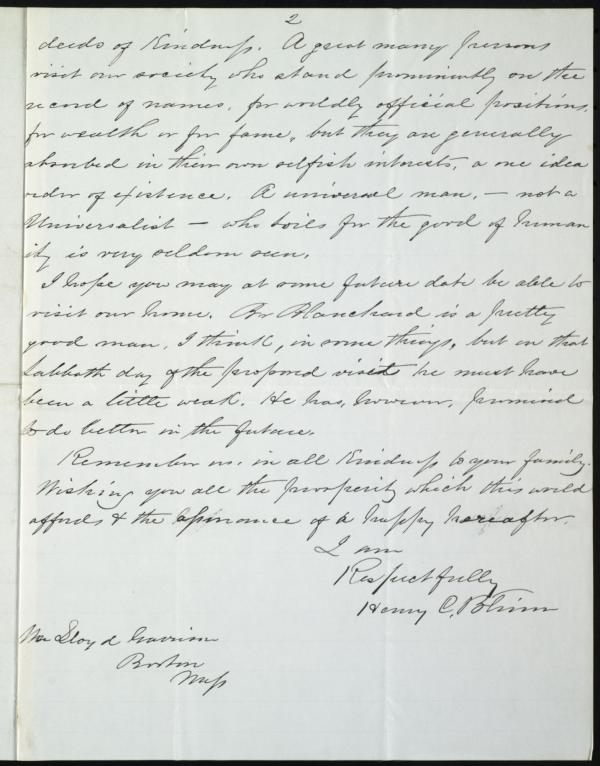 2
deeds of Kindness. A great many persons
visit our society who stand prominently on the
record of names, for worldly official positions,
for wealth or for fame, but they are generally
absorbed in their own selfish interests, a one idea
order of existence. A universal man, — not a
Universalist — who toils for the good of human
ity is very seldom seen.
I hope you may at some future date be able to
visit our home. Br Blanchard is a pretty
good man, I think, in some things, but on that
Sabbath day of the proposed visit he must have
been a little weak. He has, however, promised
to do better in the future.
Remember us in all Kindness to your family.
Wishing you all the prosperity which this world
affords & the assurance of a happy hereafter.
I am
Respectfully
Henry C. Blinn
Wm Lloyd Garrison
Boston
Mass